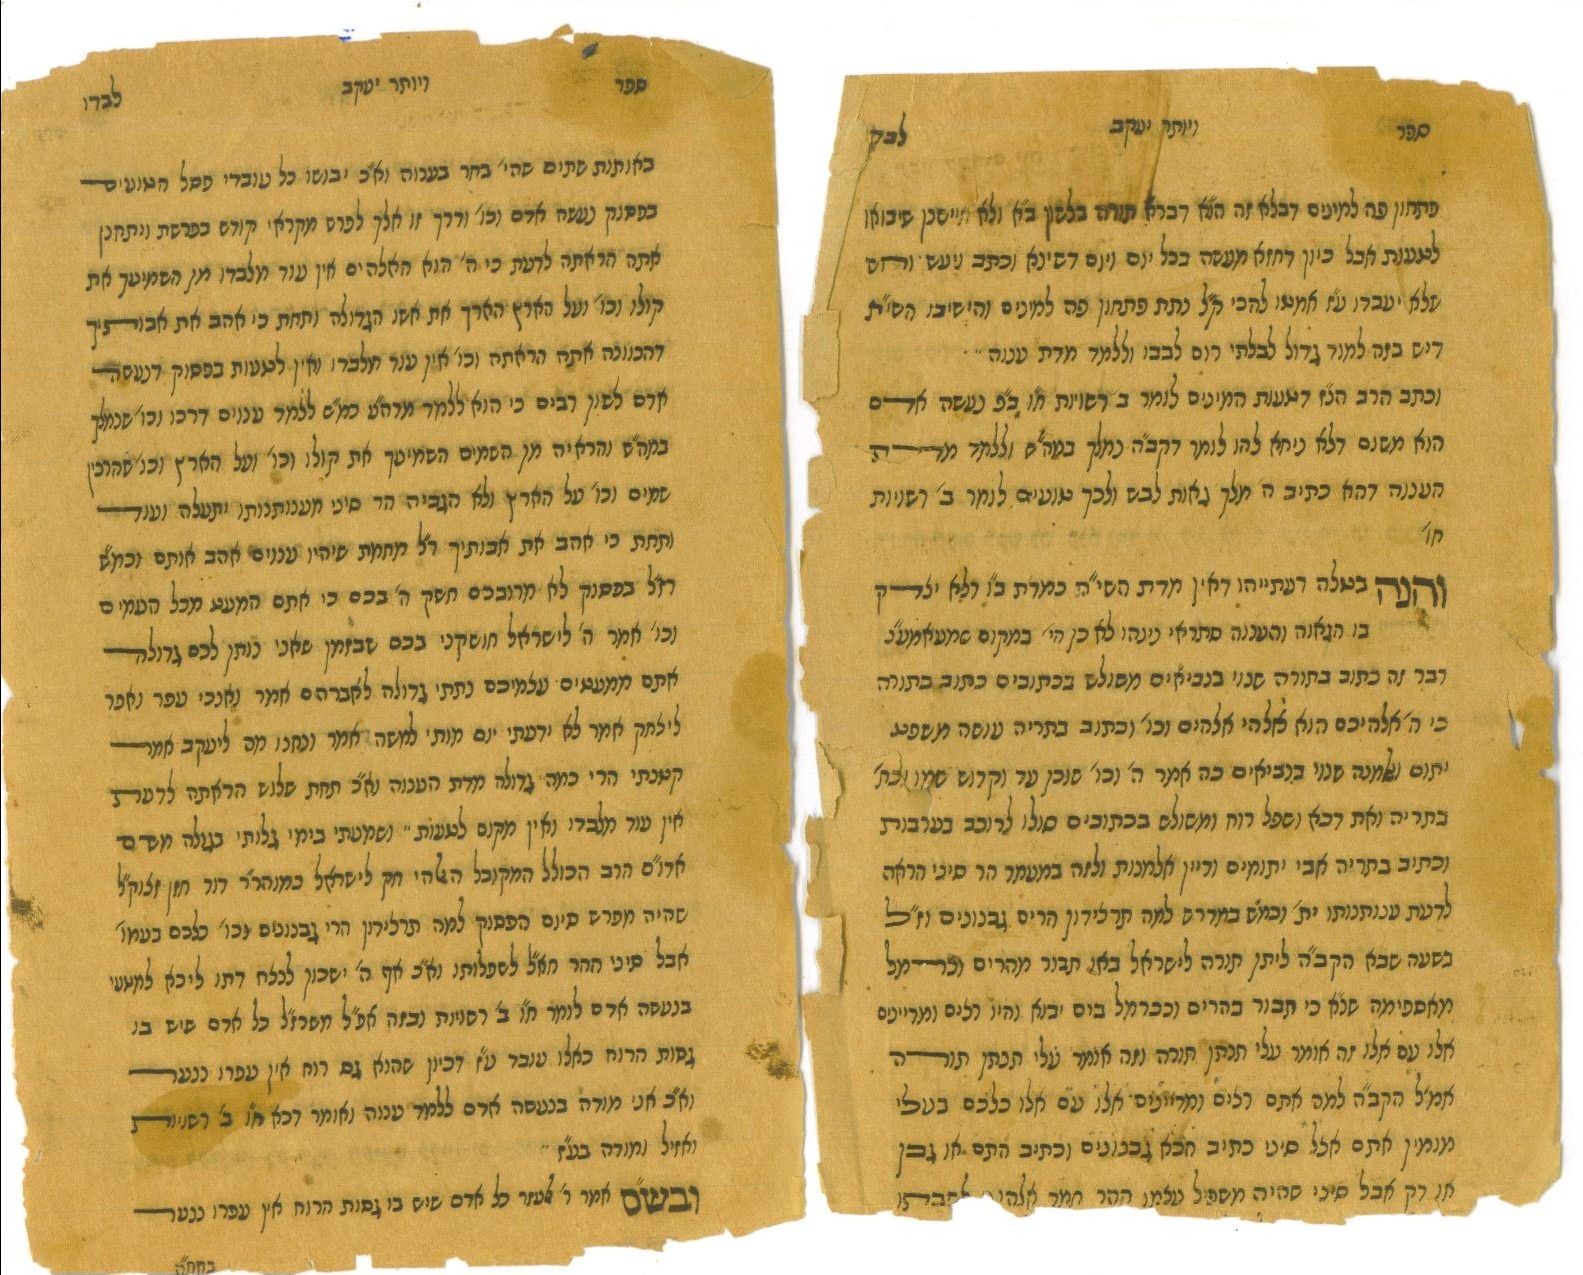 ספר ויותר יעקב לבדו
פתחון פה למינים דבלא זה הו״א דברא תורה בלשון ב״א ולא שיבואו
לטעות אבל כיון דחזא מעשה בכל יום ויום דשינא וכתב נעש וחש
שלא יעבדו ע״ז אמאי להכי ק״ל נתת פתחון פה למינים והישיבו השי״ת
דיש בזה למוד גדול לבלתי רום לבבו וללמד מדת ענוה״
וכתב הרב הנ״ז דטעות המינים לומר ב רשויות ח״ו ב״פ נעשה אדם
הוא משום דלא ניחא להו לומר דקב״ה נמלך במה״ש וללמד מדה
הענוה דהא כתיב ה׳ מלך גאות לבש ולכך טועים לומר ב׳ רשויות
חו׳
והנה בטלה דעתייהו דאין מדת השי״ת כמדת ב״ו דלא יצדק
בו הגאוה והענוה סתראי נינהו לא כן הי׳ במקום שמצא
דבר זה כתוב בתורה שנוי בנביאים משולש בכתובים כתוב בתורה
כי ה׳ אלהיכם הוא אלהי אלהים וכו׳ וכתוב בתריה עושה משפט
יתום ואלמנה שנוי בנביאים כה אמר ה׳ וכו׳ שוכן עד וקדוש שמו וכת׳
בתריה ואת דכא ושפל רוח ומשולש בכתובים סולו לרוכב בערבות
וכתיב בתריה אבי יתומים ודיין אלמנות ולזה במעמד הר סיני הראה
לדעת ענותנותו ית׳ וכמ״ש במדרש למה תרצדון הרים גבנונים וז״ל
בשעה שבא הקב״ה ליתן תורה לישראל בא תבור מהרים וכרמל
מאספימה שנ״א כי תבור בהרים וככרמל בים יבוא והיו רצים ומדיינים
אלו עם אלו זה אומר עלי תנתן תורה וזה אומר עלי תנתן תורה
אמ״ל הקב״ה למה אתם רצים ומדיינים אלו עם אלו כלכם בעלי
מומין אתם אבל סיני כתיב הכא גבנונים וכתיב התם או גבן
או דק אבל סיני שהיה משפיל עצמו ההר חמד אלהים לשבתו
ספר ויותר יעקב לבדו
באותות שתים שהי׳ בחר בענוה וא״כ יבושו כל עובדי פסל הטועים
בפסוק נעשה אדם וכו׳ ודרך זו אלך לפרש מקראי קודש בפרשת ויתחנן
אתה הראתה לדעת כי ה׳ הוא האלהים אין עוד מלבדו מן השמיעך את
קולו וכו׳ ועל הארץ הארך את אשו הגדולה ותחת כי אהב את אבותיך
דהכוונה אתה הראתה וכו׳ אין עוד מלבדו ואין לטעות בפסוק דנעשה
אדם לשון רבים כי הוא ללמד מדה״ע כמ״ש ללמד ענוים דרכו וכו׳ שנמלך
במה״ש והראיה מן השמים השמיעך את קולו וכו׳ ועל הארץ וכו׳ שהרכין
שמים וכו׳ על הארץ ולא הגביה הר סיני מענותנותו יתעלה ועוד
ותחת כי אהב את אבותיך ר״ל מחמת שיהיו ענוים אהב אותם וכמ״ש
רז״ל בפסוק לא מרובכם חשק ה׳ בכם כי אתם המעט מכל העמים
וכו׳ אמר ה׳ לישראל חושקני בכם שבזמן שאני נותן לכם גדולה
אתם ממעטים עצמיכם נתתי גדולה לאברהם אמר ואנכי עפר ואפר
ליצחק אמר לא ידעתי יום מותי למשה אמר ונחנו מה ליעקב אמר
קטנתי הרי כמה גדולה מדת הענוה וא״כ תחת שלוש הראתה לדעת
אין עוד מלבדו ואין מקום לטעות״ ושמעתי בימי גלותי בגולה משם
אדו״ם הרב הכולל המקובל האלהי חק לישראל כמוהר״ר דוד חזן זצוק״ל
שהיה מפרש סיום הפסוק למה תרצדון הרי גבנונים וכו׳ כלכם בעמו׳
אבל סיני ההר חא״ל לשפלותו וא״כ אף ה׳ ישכון לנצח דתו ליכא למטעי
בנעשה אדם לומר ח״ו ב׳ רשויות ובזה אפ״ל משרז״ל כל אדם שיש בו
גסות הרוח כאלו עובד ע״ז דכיון שהוא גם רוח אין עפרו ננער
וא״כ אני מודה בנעשה אדם ללמד ענוה ואומר דכא ח״ו ב׳ רשויות
ואזיל ומודה בע״ז״
ובש״ס אמר ר׳ לעזר כל אדם שיש בו גסות הרוח אין עפרו ננער